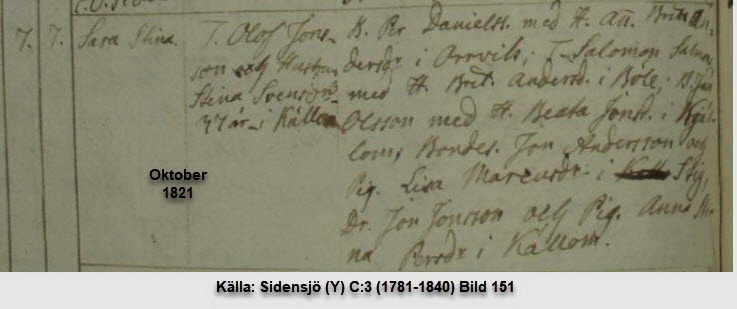 7. 7. Sara Stina.
T. Olof Jons-
son och Hustru
Stina Svensdr
37 år i Källom
B. Per Danielss. med H. An. Brita An-
dersdr i Arrvik; T. Salomon Salmon.
med H. Brit. Andersd. i Böle; B. Jon
Olsson med H. Beata Jonsd. i Kjäl-
lom; Bondes. Jon Andersson och
Pig. Lisa Marcusdr i Stig,
Dr. Jon Jonsson och Pig. Anna Sti-
na Persdr i Källom.
Oktober
1821
Källa: Sidensjö (Y) C:3 (1781-1840) Bild 151